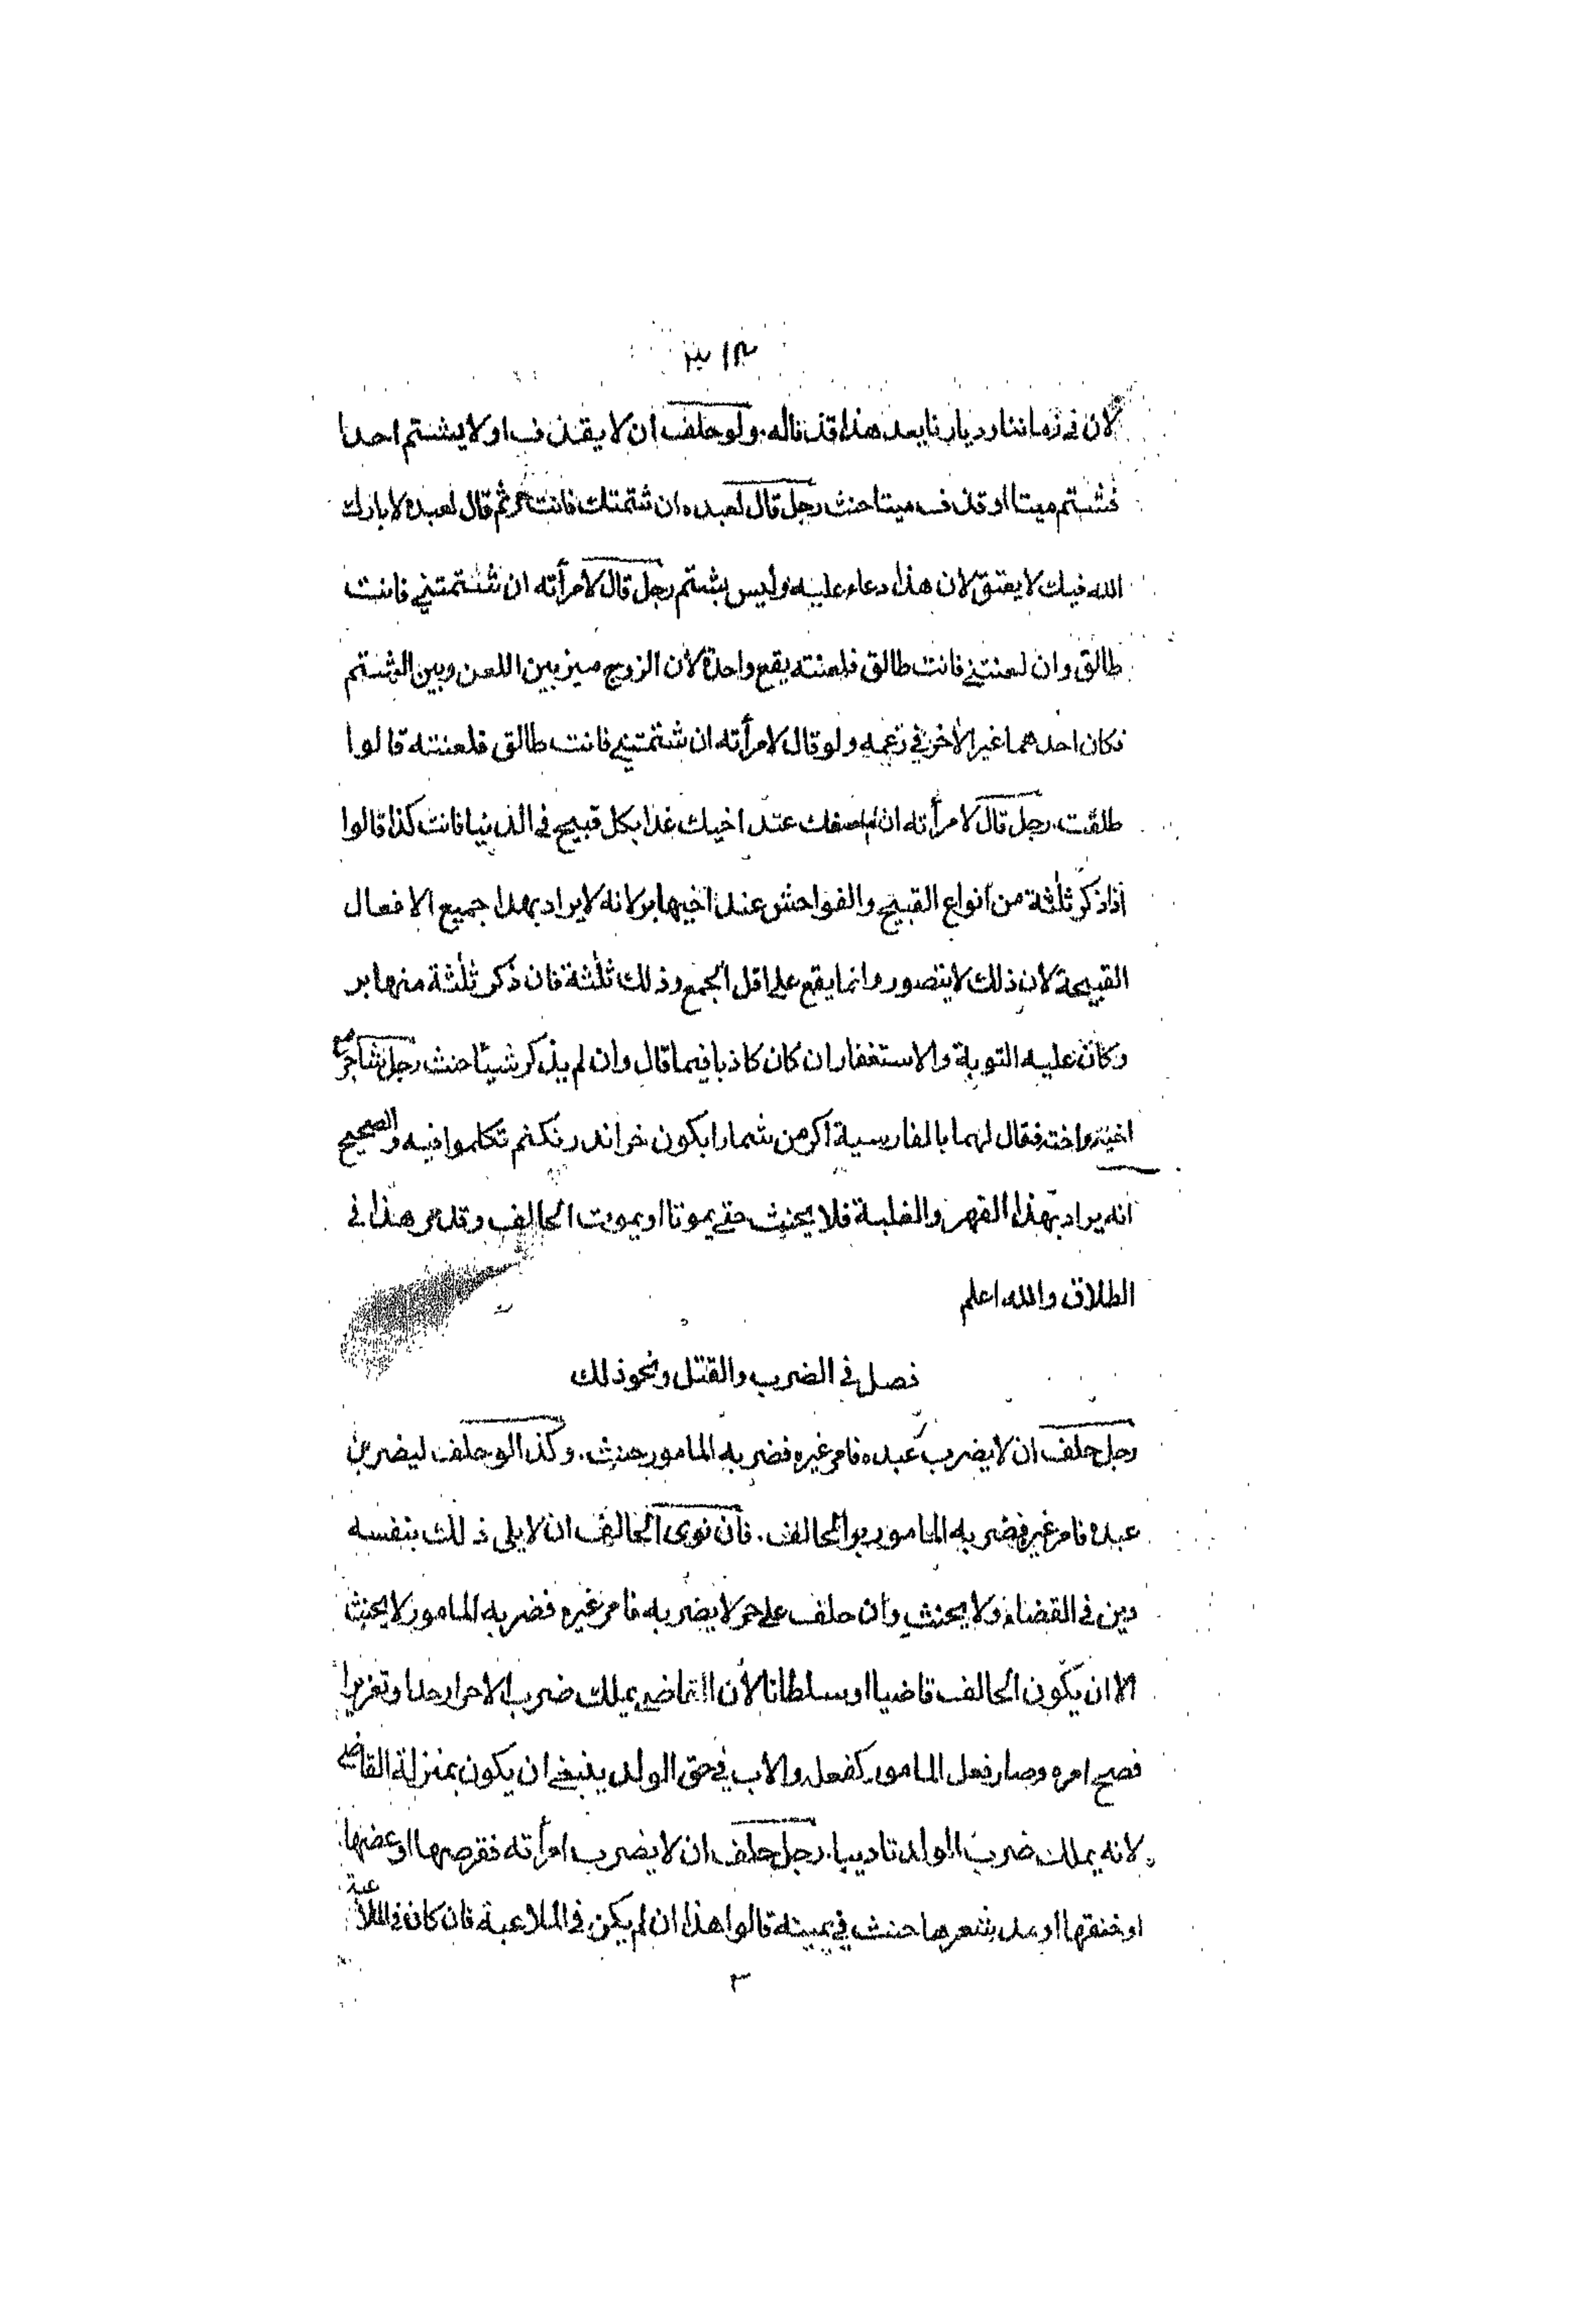 لان فى زماننا وديارنا يعد هذا قذفا له. ولو حلف ان لا يقذف او لا يشتم احدا
فشتم ميتا او قذف ميتا حنث رجل قال لعبده ان شتمتك فانت حر ثم قال لعبده لا بارك
الله فيك لا يعتق لان هذا دعاء عليه وليس بشتم رجل قال لامرأته ان شتمتني فانت
طالق وان لعنتني فانت طالق فلعنته يقع واحدة لان الزوج ميز بين اللعن وبين الشتم
فكان احدهما غير الآخر في زعمه ولو قال لامرأته ان شتمتني فانت طالق فلعنته قالوا
طلقت. رجل قال لامرأته ان لم اصفك عند اخيك غدا بكل قبيح فى الدنيا فانت كذا قالوا
اذا ذكر ثلثة من انواع القبيح والفواحش عند اخيها بر لانه لا يراد بهذا جميع الافعال
القبيحة لان ذلك لا يتصور وانما يقع على اقل الجمع وذلك ثلثة فان ذكر ثلثة منها بر
وكان عليه التوبة والاستغفار ان كان كاذبا فيما قال وان لم يذكر شيئا حنث رجل تشاجر مع
اخيه واخته فقال لهما بالفارسية اكر من شمارا بكون خر اندر نكنم تكلموا فيه والصحيح
انه يراد بهذا القهر والغلبة فلا يحنث حتى يموتا او يموت الحالف وقد مر هذا فى
الطلاق والله اعلم
فصل فى الضرب والقتل ونحو ذلك
رجل حلف ان لا يضرب عبده فامر غيره فضربه المامور حنث. وكذا لو حلف ليضربن
عبده فامر غيره فضربه المامور بر الحالف. فان نوى الحالف ان لا يلى ذلك بنفسه
دين فى القضاء ولا يحنث وان حلف على حر لا يضربه فامر غيره فضربه المامور لا يحنث
الا ان يكون الحالف قاضيا او سلطانا لان القاضي يملك ضرب الاحرار حدا وتعزيرا
فصح امره وصار فعل المامور كفعله والاب في حق الولد ينبغي ان يكون بمنزلة القاضي
لانه يملك ضرب الولد تاديبا. رجل حلف ان لا يضرب امرأته فقرصها او عضها
او خنقها او مد شعرها حنث في يمينه قالوا هذا ان لم يكن فى الملاعبة فان كان فى الملاعبة